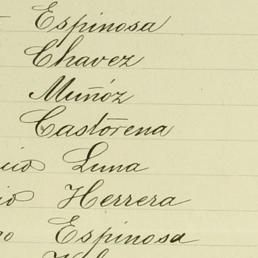 Espinosa
Chavez
Muñóz
Castorena
Luna
Herrera
Espinosa